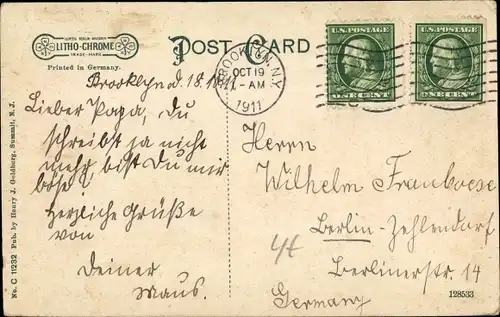 LEIPZIG BERLIN DRESDEN
LITHO-CHROME
TRADE-MARK
Printed in Germany.
POST CARD
BROOKLYN, N.Y.
OCT 19
1-AM
1911
U.S. POSTAGE
ONE CENT
U.S. POSTAGE
ONE CENT
Brooklyn d. 18.
Lieber Papa, du
schreibst ja nicht
mehr, bist Du mir
böse?
Herzliche Grüße
von
Deiner
Maus.
Herrn
Wilhelm Framboese
Berlin-Zehlendorf
Berlinerstr. 14
Germany
No. C 11232 Pub. by Henry J. Goldberg, Summit, N.J.
128533